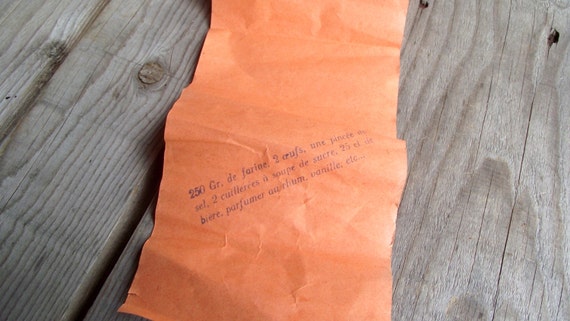 250 Gr. de farine, 2 œufs, une pincée de
sel, 2 cuillerres à soupe de sucre, 25 cl de
bière, parfumer au rhum, vanille, etc...